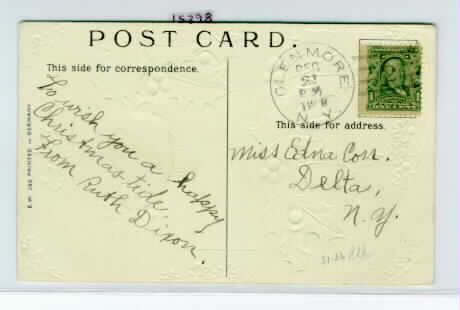 15298
POST CARD.
This side for correspondence.
To wish you a happy
Christmas tide.
From Ruth Dixon.
E.W. 282 PRINTED IN GERMANY
GLENMORE
DEC
P M
N. Y.
This side for address.
Miss Edna Corr.
Delta,
N. Y.